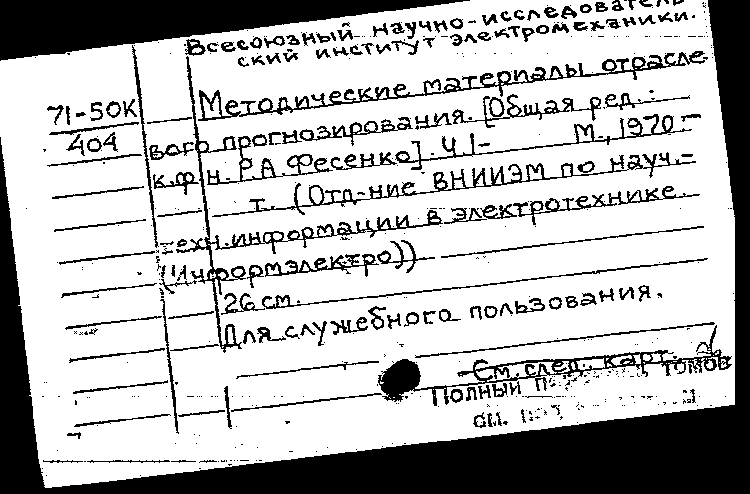 Всесоюзный научно-исследователь
ский институт электромеханики.
71-50К
404
Методические материалы отрасле
вого прогнозирования. [Общая ред.:
к.ф.н. Р.А. Фесенко]. Ч 1- М., 1970.-
т. (Отд-ние ВНИИЭМ по науч.-
техн. информации в электротехнике.
(Информэлектро))
26 см.
Для служебного пользования.
См. след. карт.
Полный томов
см.